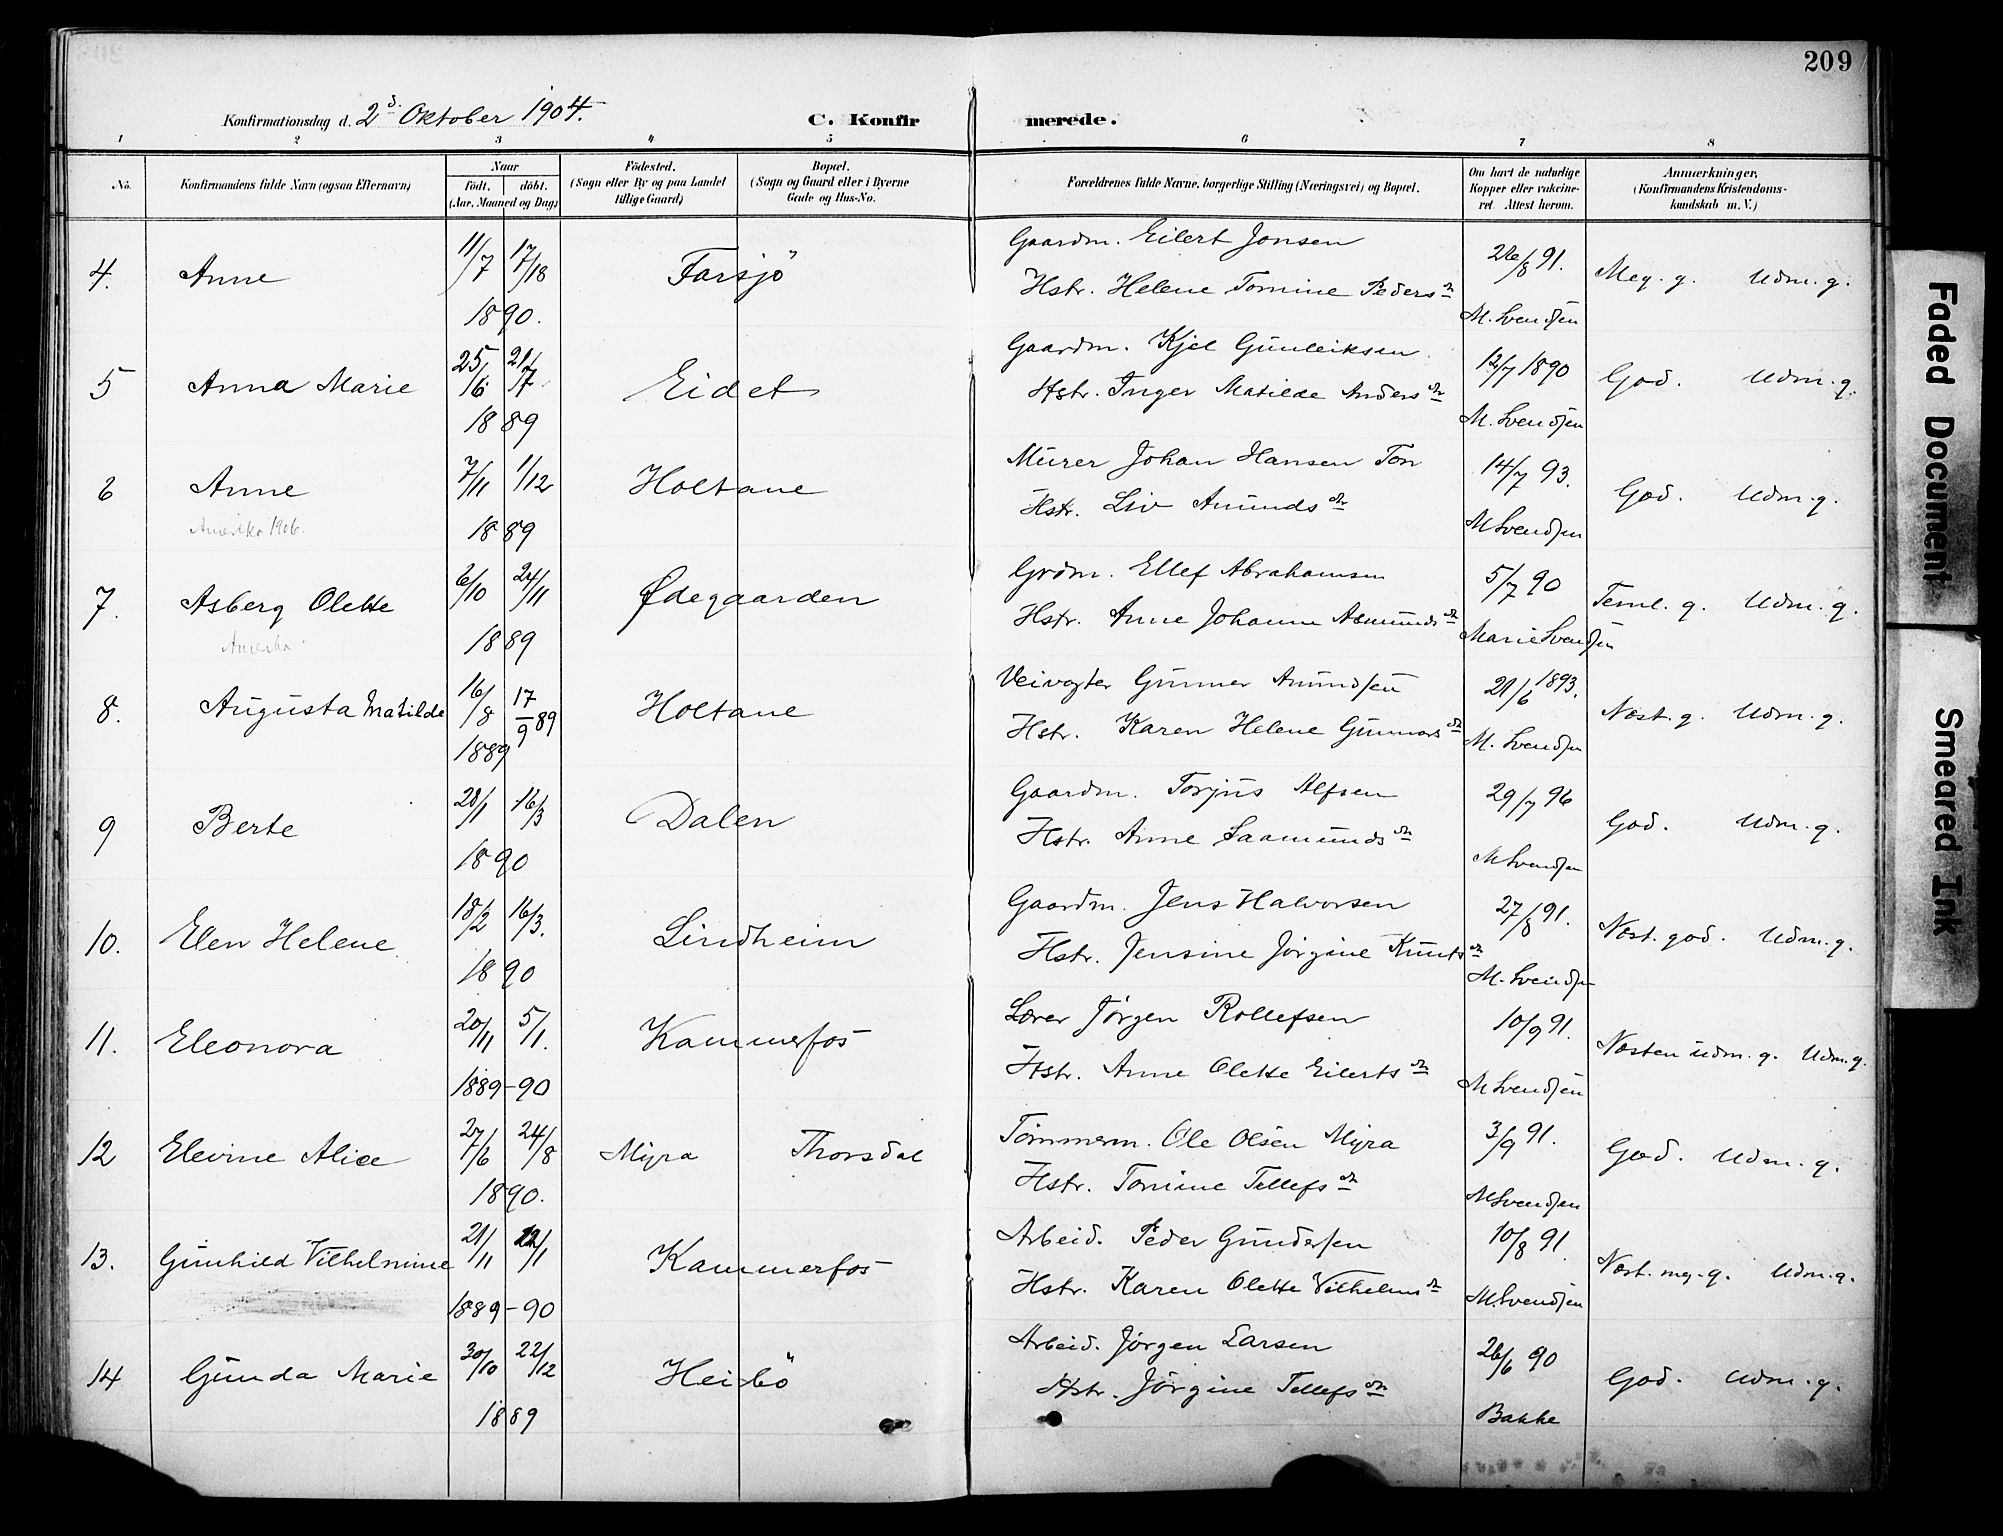 209
Konfirmationsdag d. 2d Oktober 1904.
C. Konfirmerede.
1 2 3 4 5 6 7 8
No.
Konfirmandens fulde Navn (ogsaa Efternavn)
Naar
født. døbt.
(Aar, Maaned og Dag)
Födested.
(Sogn eller By og paa Landet
tillige Gaard)
Bopæl.
(Sogn og Gaard eller i Byerne
Gade og Hus-No.
Forældrenes fulde Navne, borgerlige Stilling (Næringsvei) og Bopæl.
Om havt de naturlige
Kopper eller vakcine-
ret. Attest herom.
Anmærkninger,
(Konfirmandens Kristendoms-
kundskab m. V.)
4. Anne 11/7 17/18 1890. Farsjö
Gaardm. Eilert Jonsen
Hstr. Helene Tomine Pedersdr
26/8 91.
M. Svendsen
Meg. g. Udm. g.
5 Anna Marie 25/6 21/7 1889 Eidet
Gaardm. Kjel Gunleiksen
Hstr. Inger Matilde Andersdr
12/7 1890
M. Svendsen
God. Udm. g.
6 Anne 7/11 1/12 1889 Holtane
Amerika 1906.
Murer Johan Hansen Ton
Hstr. Liv Amundsdr
14/7 93.
M Svendsen
God. Udm. g.
7. Asberg Olette 6/10 24/11 1889 Ødegaarden
Amerika
Grdm. Ellef Abrahamsen
Hstr. Anne Johanne Asmundsdr
5/7 90
Marie Svendsen
Teml. g. Udm. g.
8. Augusta Matilde 16/8 17/9 89 1889 Holtane
Veivogter Gunner Amundsen
Hstr. Karen Helene Gunnarsdr
21/6 1893.
M. Svendsen
Næst. g. Udm. g.
9 Berte 28/1 16/3 1890 Dalen
Gaardm. Torjus Alfsen
Hstr. Anne Saamundsdr
29/7 96
M Svendsen
God. Udm. g.
10. Elen Helene 18/2 16/3. 1890 Lindheim
Gaardm. Jens Halvorsen
Hstr. Jensine Jørgine Knutsdr
27/8 91.
M. Svendsen
Næst. god. Udm. g.
11. Eleonora 20/11 5/1. 1889-90 Kammerfos
Lærer Jørgen Rollefsen
Hstr. Anne Olette Eilertsdr
10/9 91.
M Svendsen
Næsten udm. g. Udm. g.
12 Elevine Alice 27/6 24/8 1890. Myra Thorsdal
Tømmerm. Ole Olsen Myra
Hstr. Tomine Tellefsdr
3/9 91.
M Svendsen
God. Udm. g.
13. Gunhild Vilhelmine 21/11 12/1 1889-90 Kammerfos
Arbeid. Peder Gundersen
Hstr. Karen Olette Vilhelmsdr
10/8 91
M. Svendsen
Næst. meg. g. Udm. g.
14 Gunda Marie 30/10 22/12 1889 Heibö
Arbeid. Jørgen Larsen
Hstr. Jörgine Tellefsdr
26/6 90
Bakke
God. Udm. g.
Faded Document
Smeared Ink